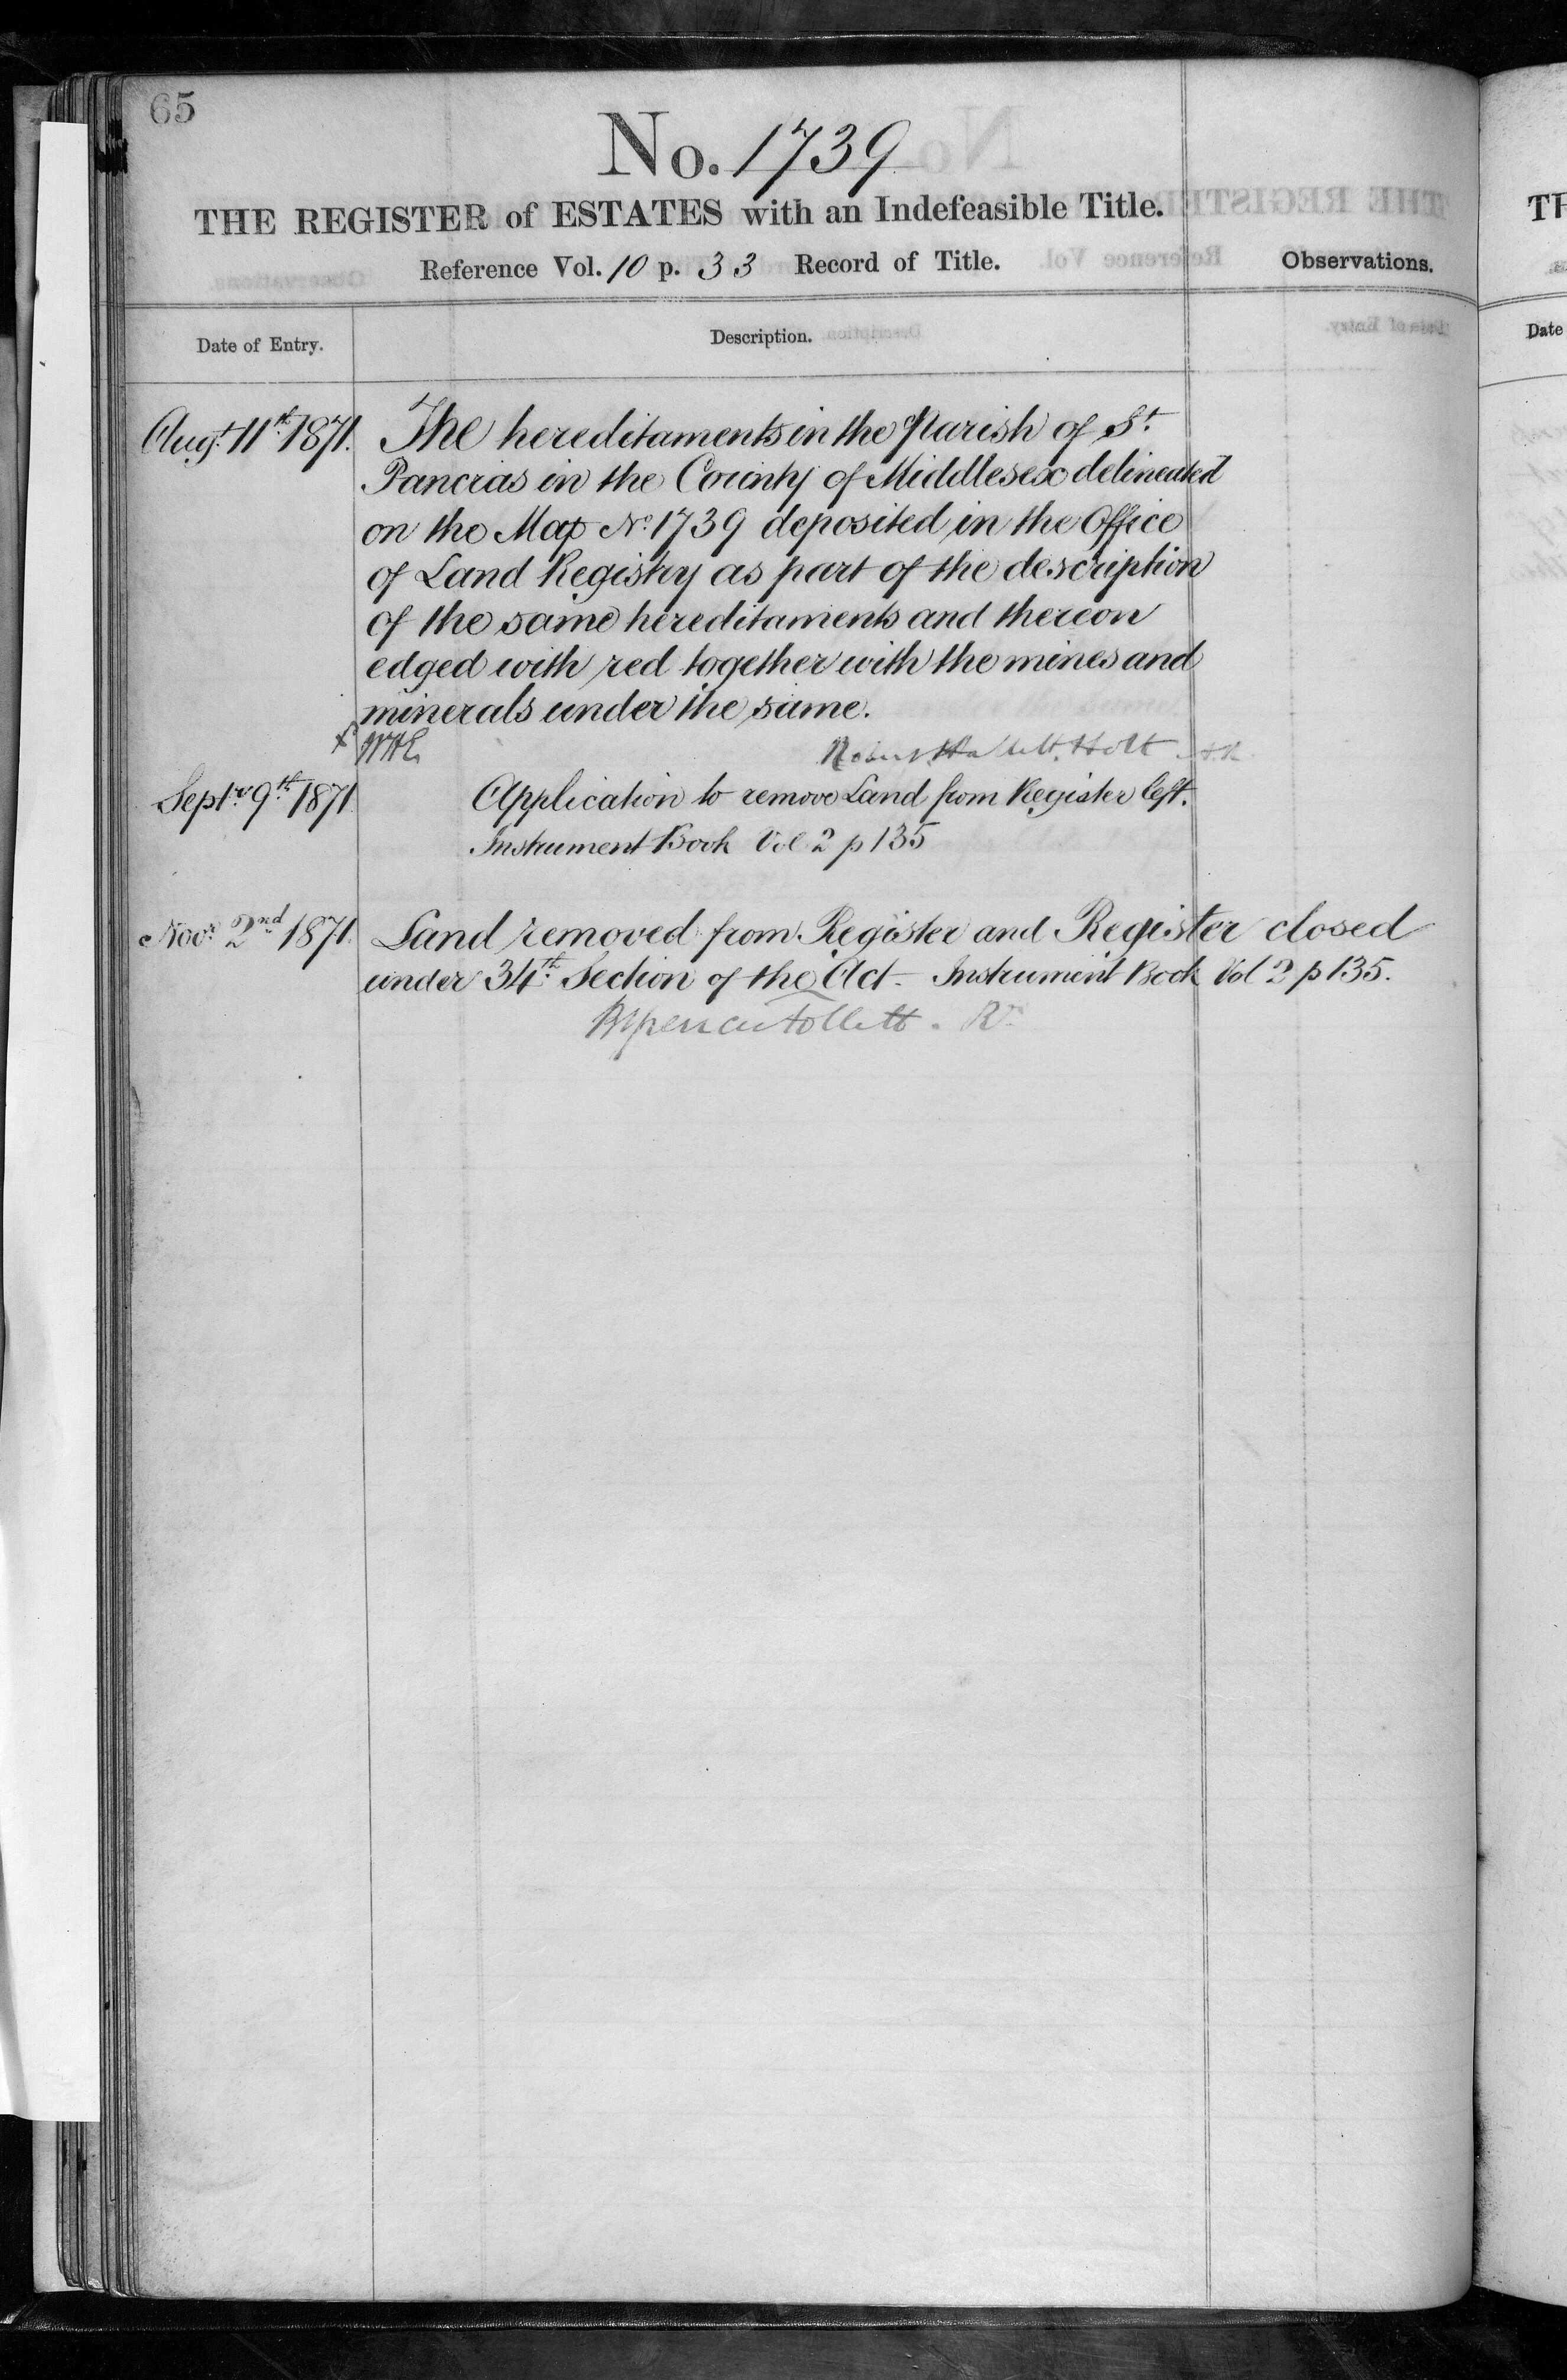 65
No. 1739
THE REGISTER of ESTATES with an Indefeasible Title.
Reference Vol. 10 p. 33 Record of Title.
Observations.
Date of Entry.
Description.
Augt. 11th 1871. The hereditaments in the Parish of St.
Pancras in the County of Middlesex delineated
on the Map No. 1739 deposited in the Office
of Land Registry as part of the description
of the same hereditaments and thereon
edged with red together with the mines and
minerals under the same.
Robert Hallett Holt A.R.
Septr. 9th 1871. Application to remove Land from Register left.
Instrument Book Vol 2 p 135
Novr. 2nd 1871. Land removed from Register and Register closed
under 34th Section of the Act - Instrument Book Vol 2 p 135.
Follett. Rr.
TH
Date